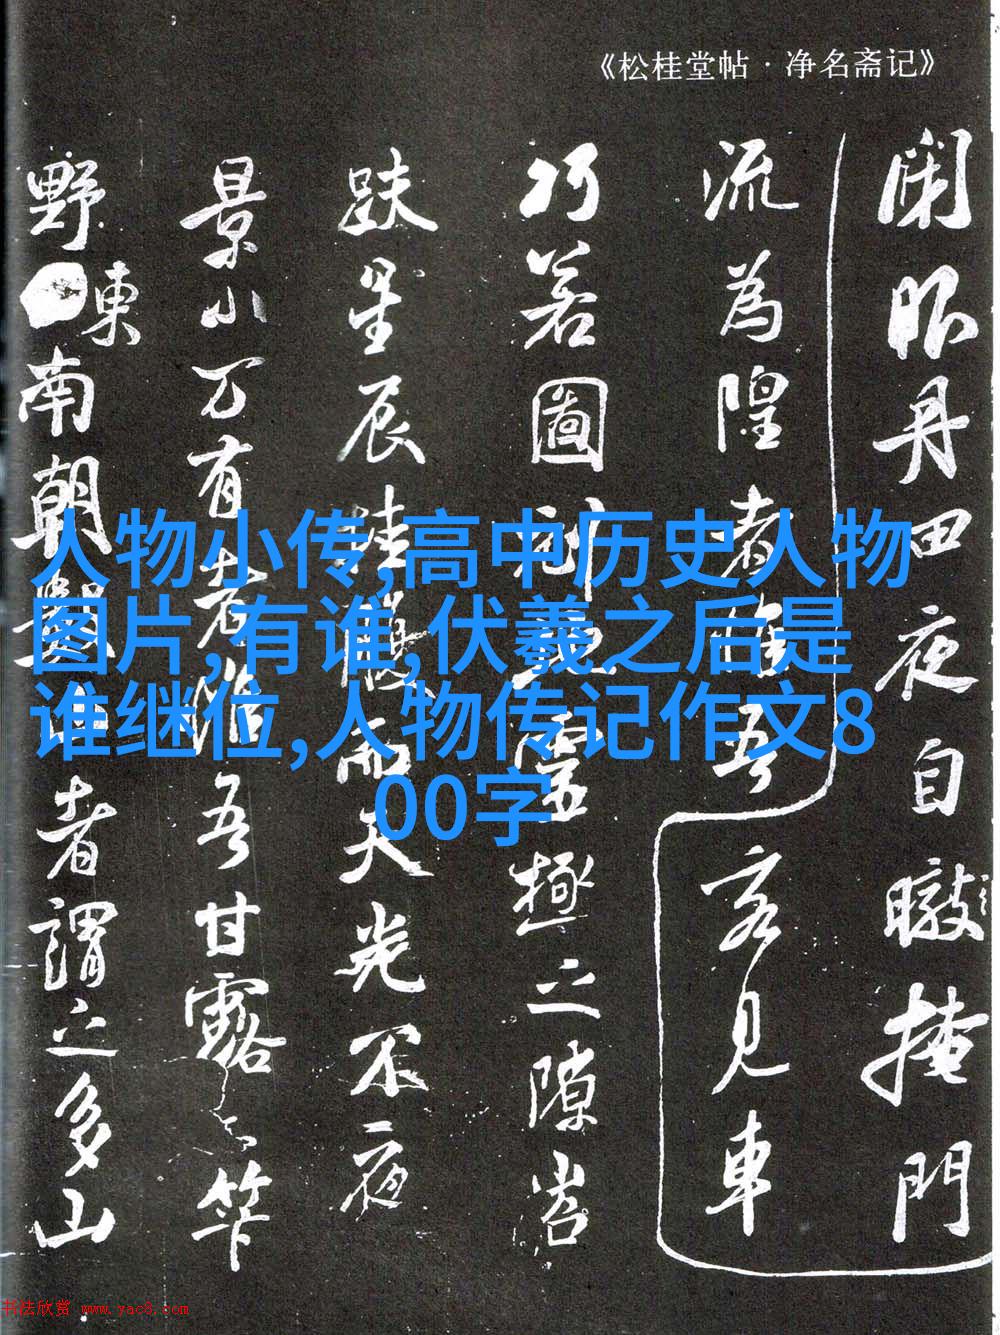 《松桂堂帖·净名斋记》
人物小传,高中历史人物
图片,有谁,伏羲之后是
谁继位,人物传记作文8
00字
闲 丹田夜白 掩門
流為隍者 吾 客見車
巧若圖刻 雲極之隙岩
趺星辰 而天光不夜
景小万有者 吾甘露 笮
野東南朝 者謂之多山
书法欣赏 www.yac8.com